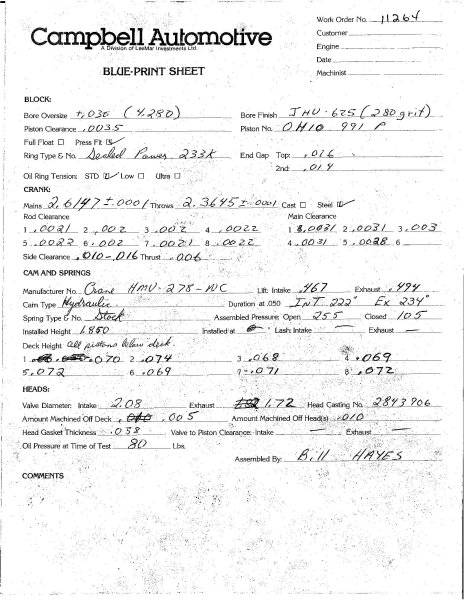 Work Order No. 11264
Campbell Automotive
A Division of LeeMar Investments Ltd.
Customer
Engine
BLUE-PRINT SHEET
Date
Machinist
BLOCK:
Bore Oversize +.030 (4.280) Bore Finish JHU-625 (280 grit)
Piston Clearance .0035 Piston No. OH10 991 P
Full Float □ Press Fit ☑
Ring Type & No. Sealed Power 233K End Gap Top: .016
2nd: .014
Oil Ring Tension: STD ☑ Low □ Ultra □
CRANK:
Mains 2.6147 ±.0001 Throws 2.3645 ±.0001 Cast □ Steel ☑
Rod Clearance Main Clearance
1 .0021 2 .002 3 .002 4 .0022 1 .0031 2 .0031 3 .003
5 .0022 6 .002 7 .0021 8 .0022 4 .0031 5 .0028 6
Side Clearance .010-.016 Thrust .006
CAM AND SPRINGS
Manufacturer No. Crane HMV-278-NC Lift: Intake .467 Exhaust .494
Cam Type Hydraulic Duration at .050 INT 222° Ex 234°
Spring Type & No. Stock Assembled Pressure: Open 255 Closed 105
Installed Height 1.850 Installed at Lash: Intake — Exhaust —
Deck Height all pistons below deck
1 .070 2 .074 3 .068 4 .069
5 .072 6 .069 7 .071 8 .072
HEADS:
Valve Diameter: Intake 2.08 Exhaust 1.72 Head Casting No. 2843906
Amount Machined Off Deck .005 Amount Machined Off Head(s) .010
Head Gasket Thickness .038 Valve to Piston Clearance: Intake — Exhaust —
Oil Pressure at Time of Test 80 Lbs.
Assembled By: Bill HAYES
COMMENTS